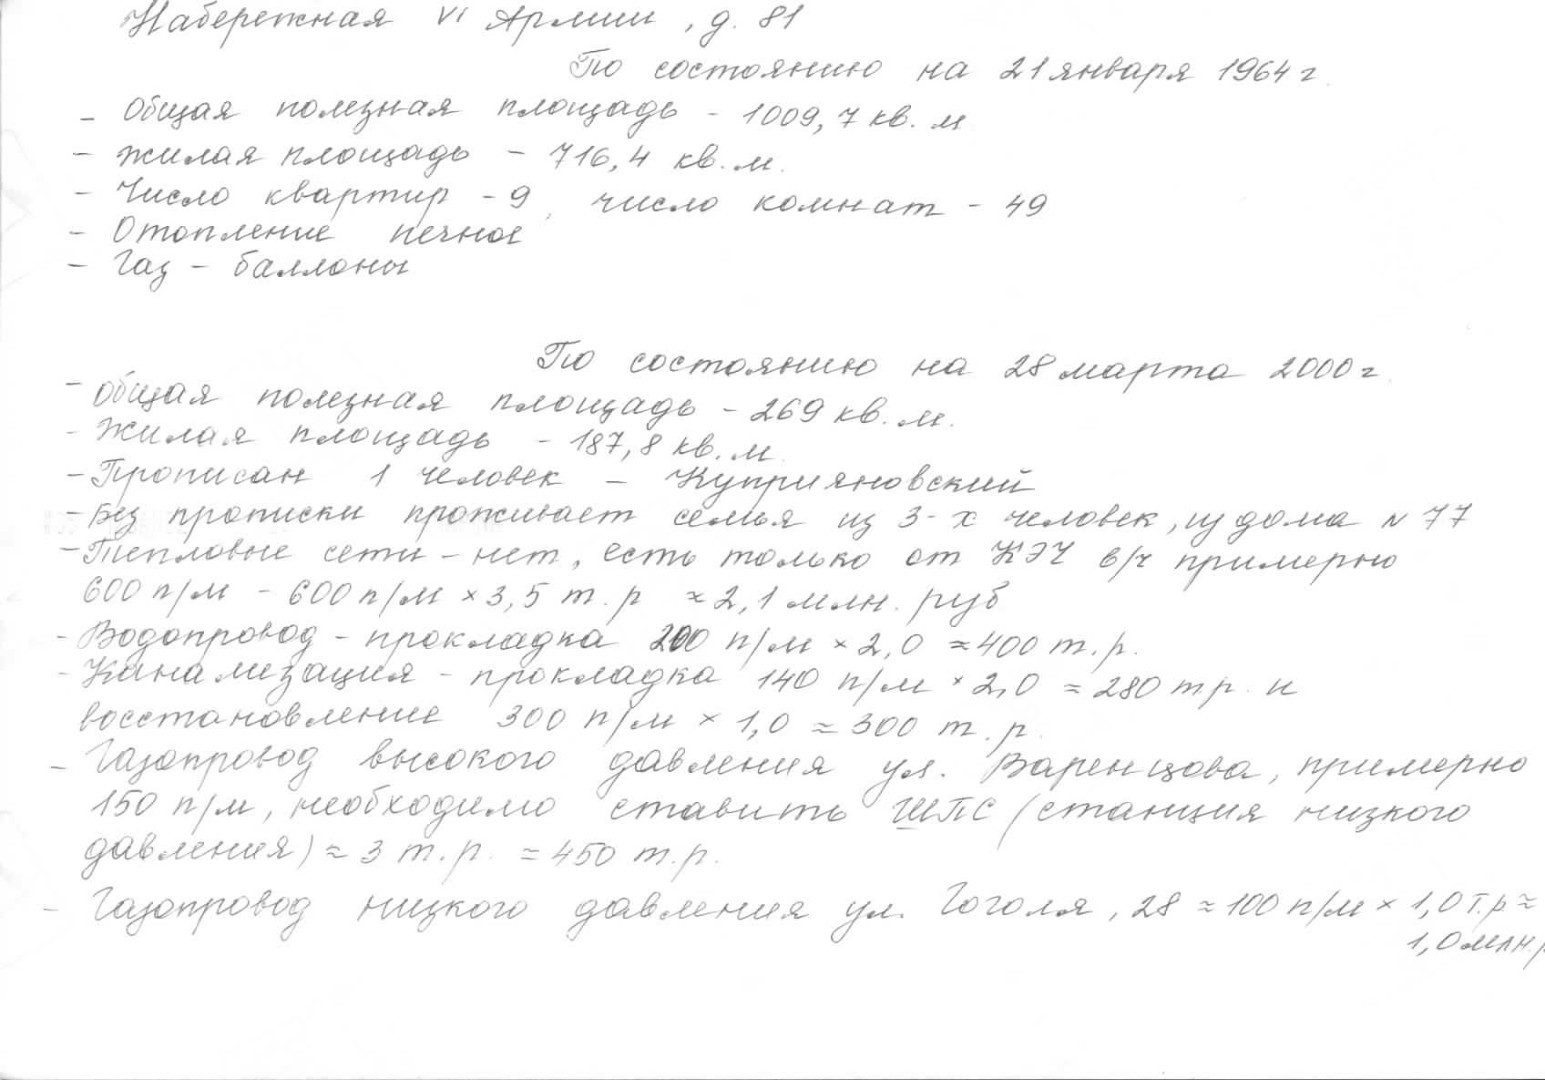 Набережная VI Армии, д. 81
По состоянию на 21 января 1964 г.
- Общая полезная площадь - 1009,7 кв. м
- Жилая площадь - 716,4 кв. м.
- Число квартир - 9, число комнат - 49
- Отопление печное
- Газ - баллоны
По состоянию на 28 марта 2000 г.
- Общая полезная площадь - 269 кв. м.
- Жилая площадь - 187,8 кв. м
- Прописан 1 человек - Куприяновский
- Без прописки проживает семья из 3-х человек, из дома N 77
- Тепловые сети - нет, есть только от КЭЧ в/ч примерно
600 п/м - 600 п/м × 3,5 т. р ≈ 2,1 млн. руб
- Водопровод - прокладка 200 п/м × 2,0 ≈ 400 т. р.
- Канализация - прокладка 140 п/м × 2,0 = 280 т.р. и
восстановление 300 п/м × 1,0 ≈ 300 т. р.
- Газопровод высокого давления ул. Варенцова, примерно
150 п/м, необходимо ставить ШПС (станция низкого
давления) ≈ 3 т. р. ≈ 450 т. р.
- Газопровод низкого давления ул. Гоголя, 28 ≈ 100 п/м × 1,0 т.р ≈
1,0 млн. р